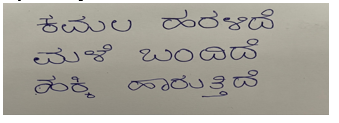 ಕಮಲ ಹರಳಿದೆ
ಮಳೆ ಬಂದಿದೆ
ಹಕ್ಕಿ ಹಾರುತ್ತಿದೆ